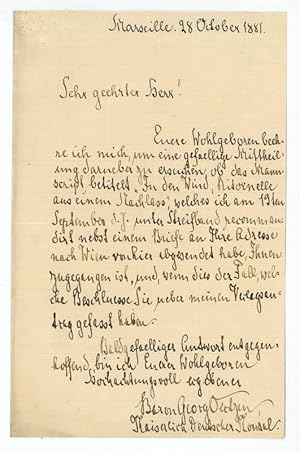 Marseille. 28 October 1881.
Sehr geehrter Herr!
Euere Wohlgeboren beeh-
re ich mich, um eine gefaellige Mittheil-
ung darueber zu ersuchen, ob das Manu-
script betitelt „In den Wind, Ritornelle
aus einem Nachlass", welches ich am 13ten
September d. J. unter Streifband recomman-
dirt nebst einem Briefe an Ihre Adresse
nach Wien von hier abgesendet habe, Ihnen
zugegangen ist, und, wenn dies der Fall, wel-
che Beschluesse Sie ueber meinen Verlagsan-
trag gefasst haben.
Baldgefaelliger Antwort entgegen-
hoffend, bin ich Euer Wohlgeboren
hochachtungsvoll ergebener
Baron Georg Oertzen,
Kaiserlich Deutscher Konsul.